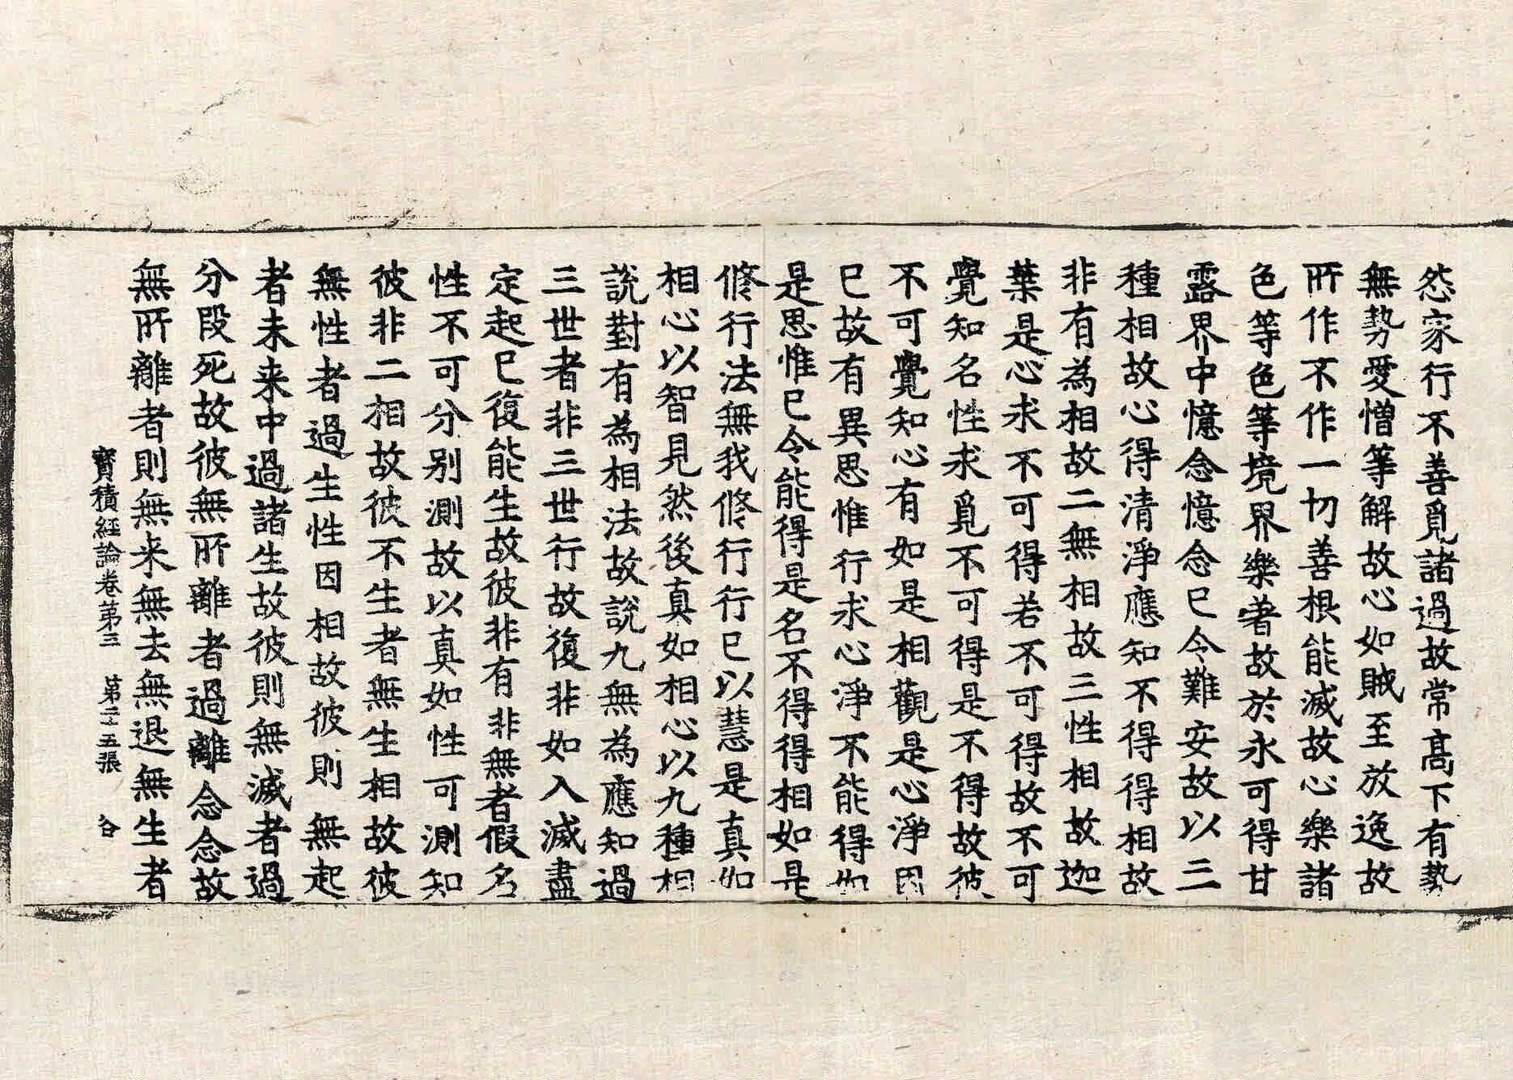 怨家行不善覓諸過故常高下有勢
無勢愛憎等解故心如賊至放逸故
所作不作一切善根能滅故心樂諸
色等色等境界樂著故於永可得甘
露界中憶念憶念已令難安故以三
種相故心得清淨應知不得得相故
非有為相故二無相故三性相故迦
葉是心求不可得若不可得故不可
覺知名性求覓不可得是不得故彼
不可覺知心有如是相觀是心淨因
已故有異思惟行求心淨不能得如
是思惟已令能得是名不得得相如是
修行法無我修行行已以慧是真如
相心以智見然後真如相心以九種相
說對有為相法故說九無為應知過
三世者非三世行故復非如入滅盡
定起已復能生故彼非有非無者假名
性不可分別測故以真如性可測知
彼非二相故彼不生者無生相故彼
無性者過生性因相故彼則無起
者未来中過諸生故彼則無滅者過
分段死故彼無所離者過離念念故
無所離者則無来無去無退無生者
寶積經論卷第三 第二十五張 谷